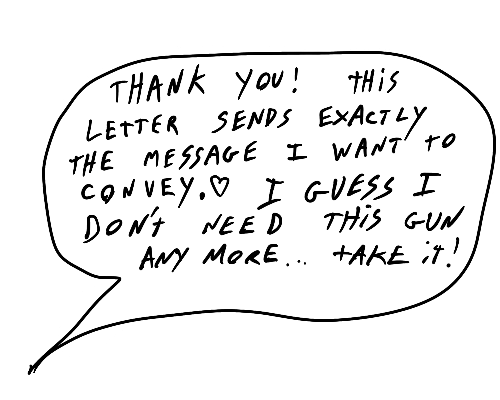 THANK YOU! THiS
LETTER SENDS EXACTLY
THE MESSAGE I WANT TO
CONVEY.♡ I GUESS I
DON'T NEED THiS GUN
ANY MORE... TAKE iT!